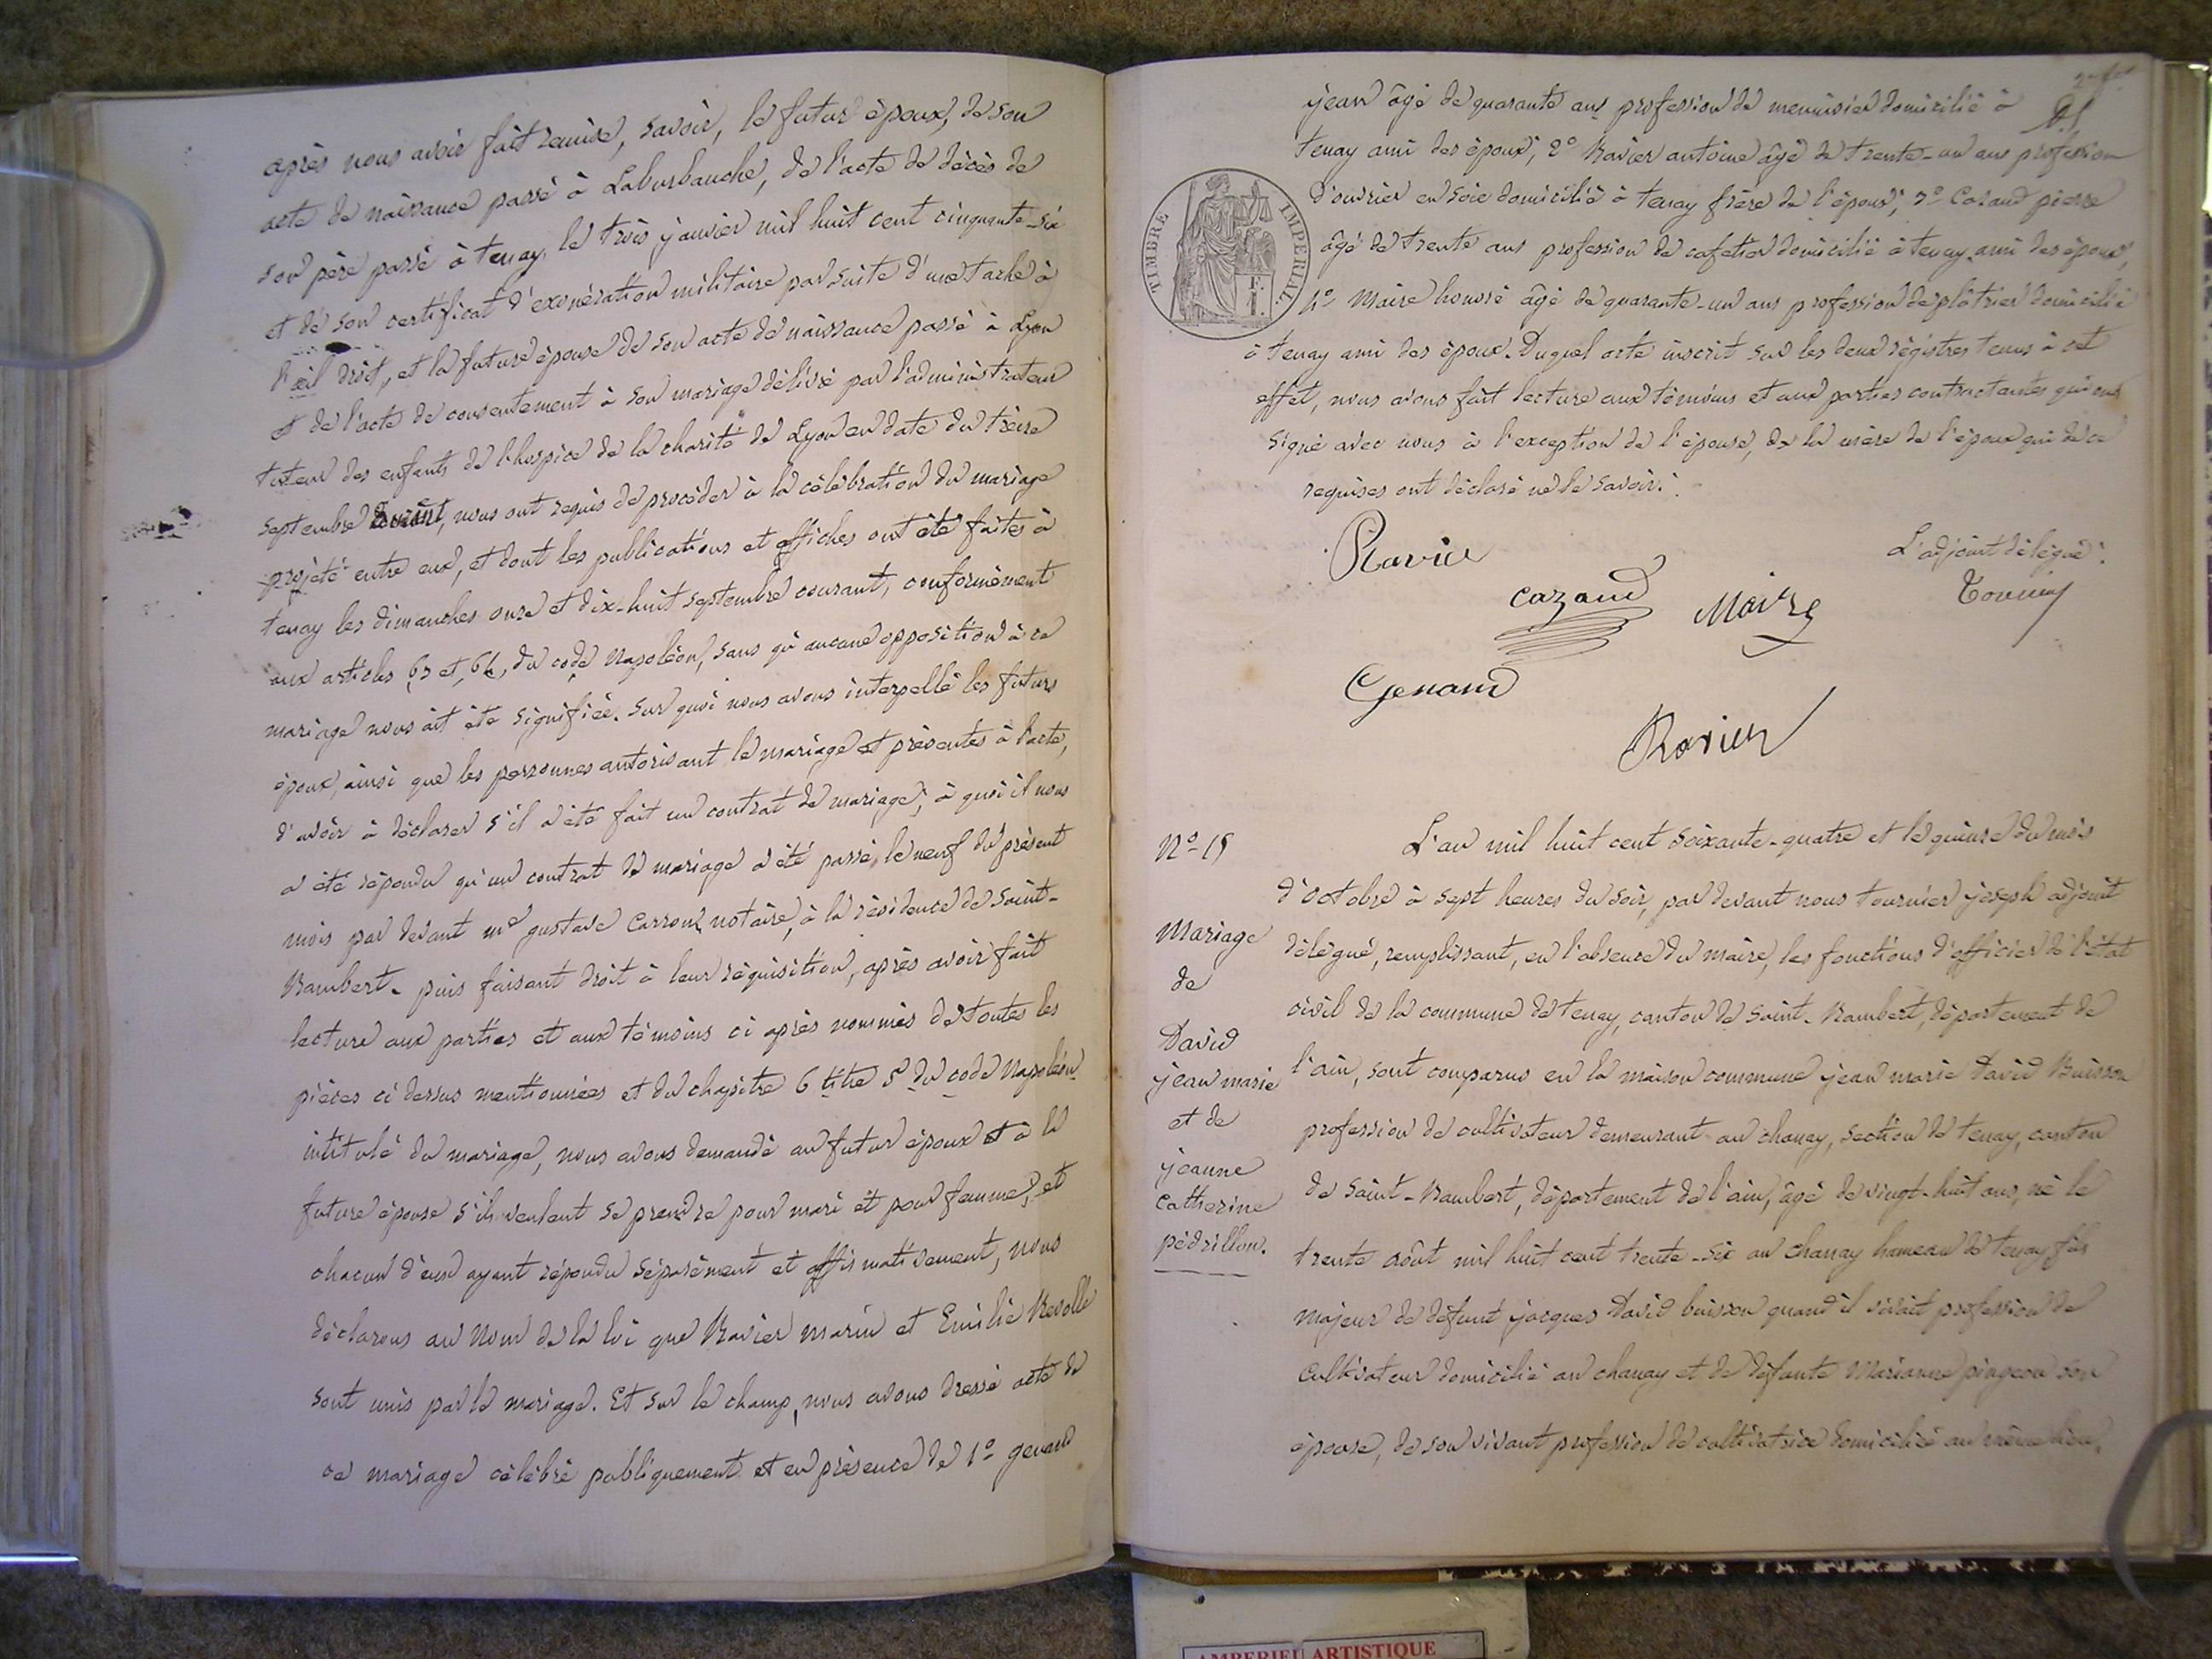 après nous avoir fait remise, savoir, le futur époux, de son
acte de naissance passé à Laburbanche, de l'acte de décès de
son père passé à tenay, le trois janvier mil huit cent cinquante-six
et de son certificat d'exonération militaire par suite d'une tache à
l'œil droit, et la future épouse de son acte de naissance passé à Lyon
et de l'acte de consentement à son mariage délivré par l'administrateur
tuteur des enfants de l'hospice de la charité de Lyon en date du treize
septembre courant, nous ont requis de procéder à la célébration du mariage
projeté entre eux, et dont les publications et affiches ont été faites à
tenay les dimanches onze et dix-huit septembre courant, conformément
aux articles 63 et, 64, du code Napoléon, sans qu'aucune opposition à ce
mariage nous ait été signifiée. Sur quoi nous avons interpellé les futurs
époux, ainsi que les personnes autorisant le mariage et présentes à l'acte,
d'avoir à déclarer s'il a été fait un contrat de mariage; à quoi il nous
a été répondu qu'un contrat de mariage a été passé, le neuf du présent
mois par devant me gustave Carron, notaire, à la résidence de Saint-
Rambert. puis faisant droit à leur réquisition, après avoir fait
lecture aux parties et aux témoins ci après nommés de toutes les
pièces ci dessus mentionnées et du chapitre 6 titre 5 du code Napoléon
intitulé du mariage, nous avons demandé au futur époux et à la
future épouse s'ils veulent se prendre pour mari et pour femme, et
chacun d'eux ayant répondu séparément et affirmativement, nous
déclarons au nom de la loi que Ravier marin et Emilie Revolle
sont unis par le mariage. Et sur le champ, nous avons dressé acte de
ce mariage célébré publiquement et en présence de 1º genand
jean âgé de quarante ans profession de menuisier domicilié à
tenay ami des époux, 2º Ravier antoine âgé de trente-un ans profession
d'ouvrier en soie domicilié à tenay frère de l'époux, 3º Cazand pierre
âgé de trente ans profession de cafetier domicilié à tenay ami des époux,
4º Maire honoré âgé de quarante-un ans profession de plâtrier domicilié
à tenay ami des époux. Duquel acte inscrit sur les deux régistres tenus à cet
effet, nous avons fait lecture aux témoins et aux parties contractantes qui ont
signé avec nous à l'exception de l'épouse, de la mère de l'époux qui de ce
requises ont déclaré ne le savoir.
TIMBRE IMPÉRIAL
Ravier
L'adjoint délégué.
cazand Maire
Genand
Ravier
Nº 15
Mariage
de
David
jean marie
et de
jeanne
Catherine
pédrillon.
L'an mil huit cent soixante-quatre et le quinze du mois
d'octobre à sept heures du soir, par devant nous tournier joseph adjoint
délégué, remplissant, en l'absence du maire, les fonctions d'officier de l'état
civil de la commune de tenay, canton de Saint-Rambert, département de
l'ain, sont comparus en la maison commune jean marie David Buisson
profession de cultivateur demeurant au chanay, section de tenay, canton
de Saint-Rambert, département de l'ain, âgé de vingt-huit ans, né le
trente août mil huit cent trente-six au chanay hameau de tenay fils
majeur de défunt jacques David buisson quand il vivait profession de
cultivateur domicilié au chanay et de défunte Marianne pingeon son
épouse, de son vivant profession de cultivatrice domiciliée au même lieu,
AMBERIEU ARTISTIQUE